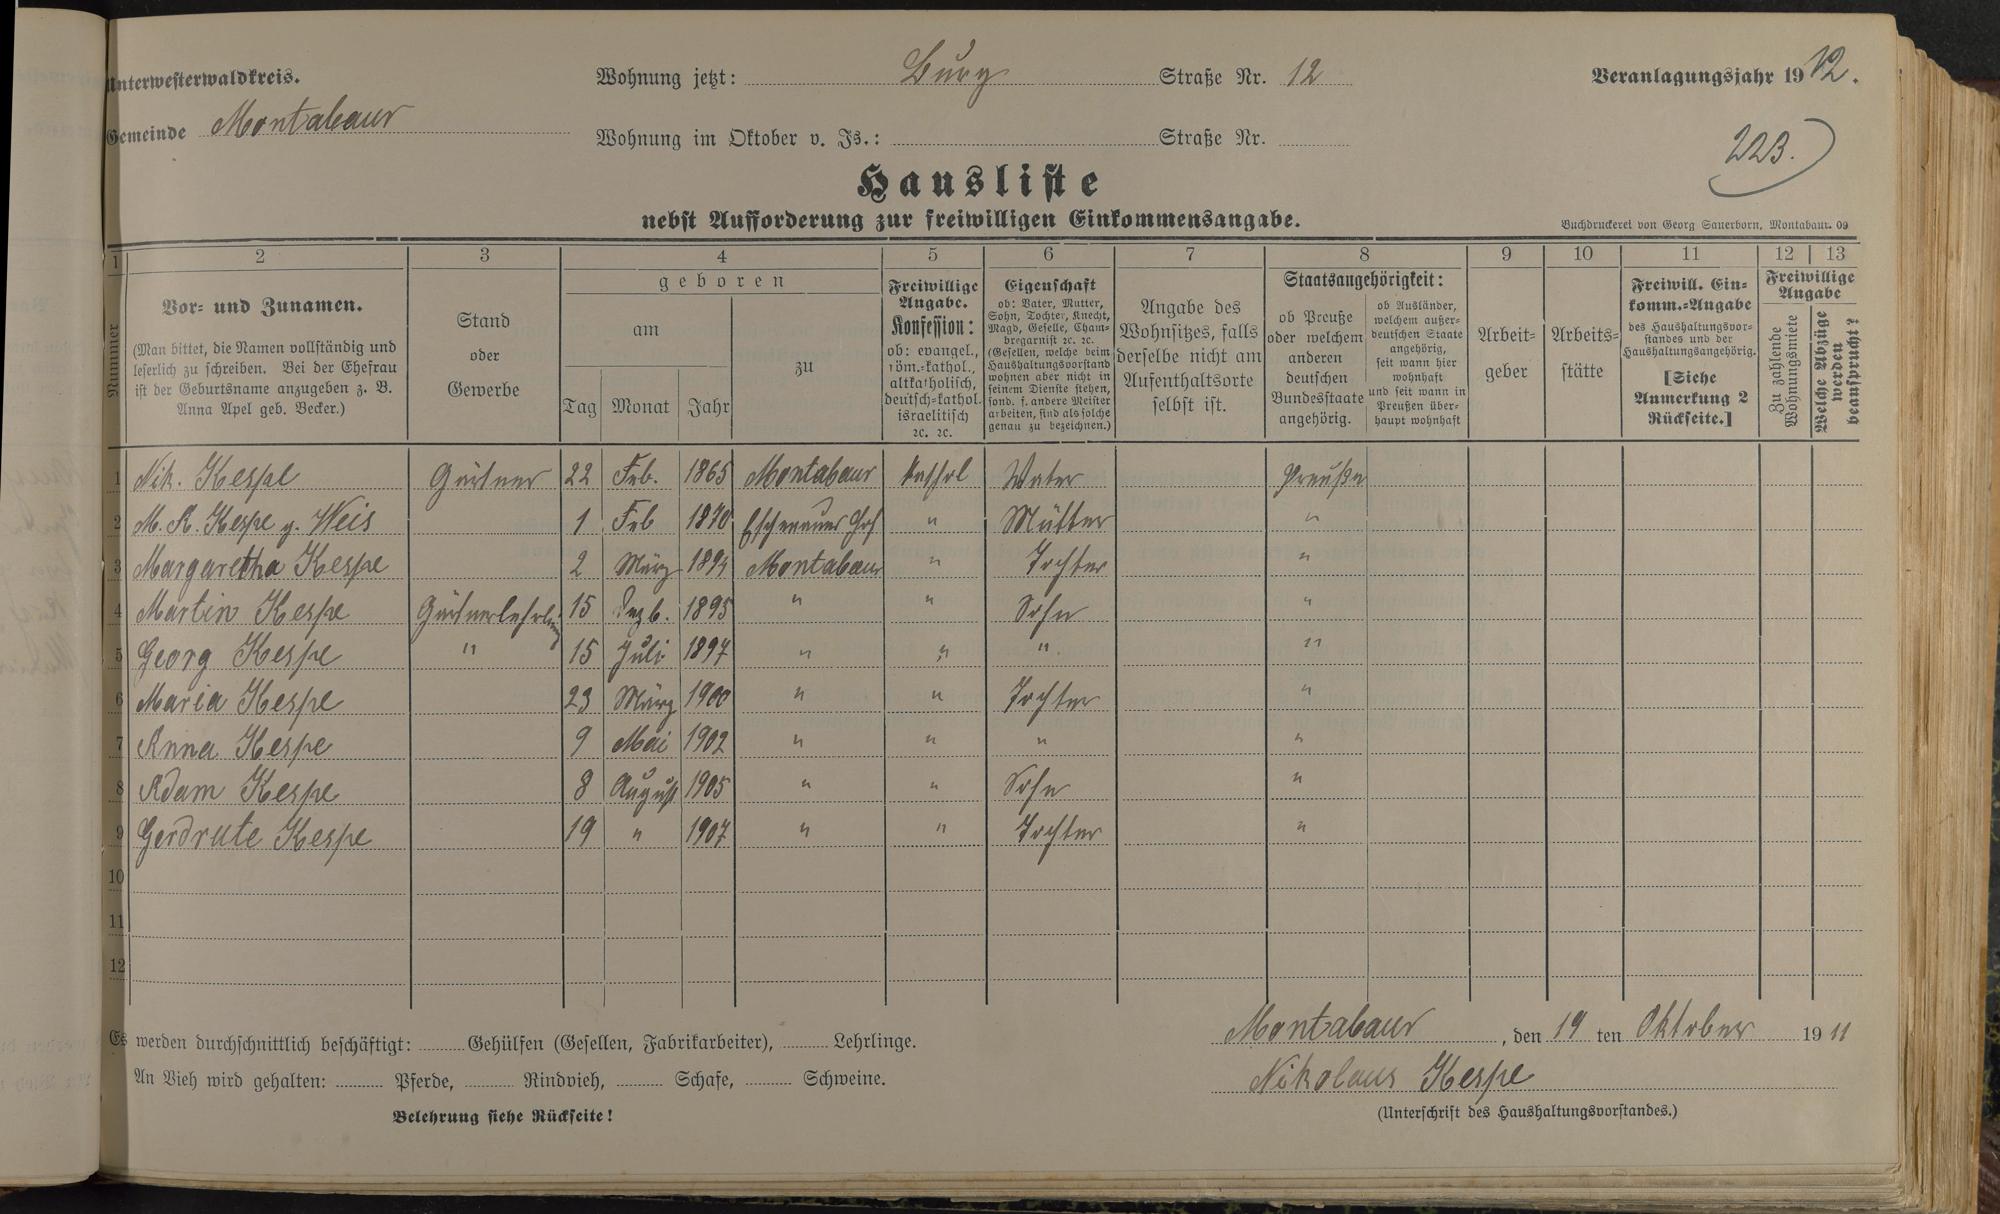 Unterwesterwaldkreis.
Gemeinde Montabaur
Wohnung jetzt: Burg Straße Nr. 12
Wohnung im Oktober v. Js.: Straße Nr.
Veranlagungsjahr 1912.
223.
Hausliste
nebst Aufforderung zur freiwilligen Einkommensangabe.
Buchdruckerei von Georg Sauerborn, Montabaur. 09
1 2 3 4 5 6 7 8 9 10 11 12 13
Nummer
Vor- und Zunamen.
(Man bittet, die Namen vollständig und
leserlich zu schreiben. Bei der Ehefrau
ist der Geburtsname anzugeben z. B.
Anna Apel geb. Becker.)
Stand
oder
Gewerbe
geboren
am
Tag Monat Jahr
zu
Freiwillige
Angabe.
Konfession:
ob: evangel.,
röm.-kathol.,
altkatholisch,
deutsch-kathol.
israelitisch
ꝛc. ꝛc.
Eigenschaft
ob: Vater, Mutter,
Sohn, Tochter, Knecht,
Magd, Geselle, Cham-
bregarnist ꝛc. ꝛc.
(Gesellen, welche beim
Haushaltungsvorstand
wohnen aber nicht in
seinem Dienste stehen,
sond. f. andere Meister
arbeiten, sind als solche
genau zu bezeichnen.)
Angabe des
Wohnsitzes, falls
derselbe nicht am
Aufenthaltsorte
selbst ist.
Staatsangehörigkeit:
ob Preuße
oder welchem
anderen
deutschen
Bundesstaate
angehörig.
ob Ausländer,
welchem außer-
deutschen Staate
angehörig,
seit wann hier
wohnhaft
und seit wann in
Preußen über-
haupt wohnhaft
Arbeit-
geber
Arbeits-
stätte
Freiwill. Ein-
komm.-Angabe
des Haushaltungsvor-
standes und der
Haushaltungsangehörig.
[Siehe
Anmerkung 2
Rückseite.]
Freiwillige
Angabe
Zu zahlende
Wohnungsmiete
Welche Abzüge
werden
beansprucht?
1 Nik. Kespe Gärtner 22 Feb. 1865 Montabaur Vater Preuße
2 M. K. Kespe g. Weis 1 Feb 1870 Eschenauer Hof " Mutter "
3 Margaretha Kespe 2 März 1894 Montabaur " Tochter "
4 Martin Kespe Gärtnerlehrling 15 Dezb. 1895 " " Sohn "
5 Georg Kespe " 15 Juli 1897 " " " "
6 Maria Kespe 23 März 1900 " " Tochter "
7 Anna Kespe 9 Mai 1902 " " " "
8 Adam Kespe 8 August 1905 " " Sohn "
9 Gerdrute Kespe 19 " 1907 " " Tochter "
10
11
12
Es werden durchschnittlich beschäftigt: Gehülfen (Gesellen, Fabrikarbeiter), Lehrlinge.
An Vieh wird gehalten: Pferde, Rindvieh, Schafe, Schweine.
Belehrung siehe Rückseite!
Montabaur, den 19 ten Oktober 1911
Nikolaus Kespe
(Unterschrift des Haushaltungsvorstandes.)